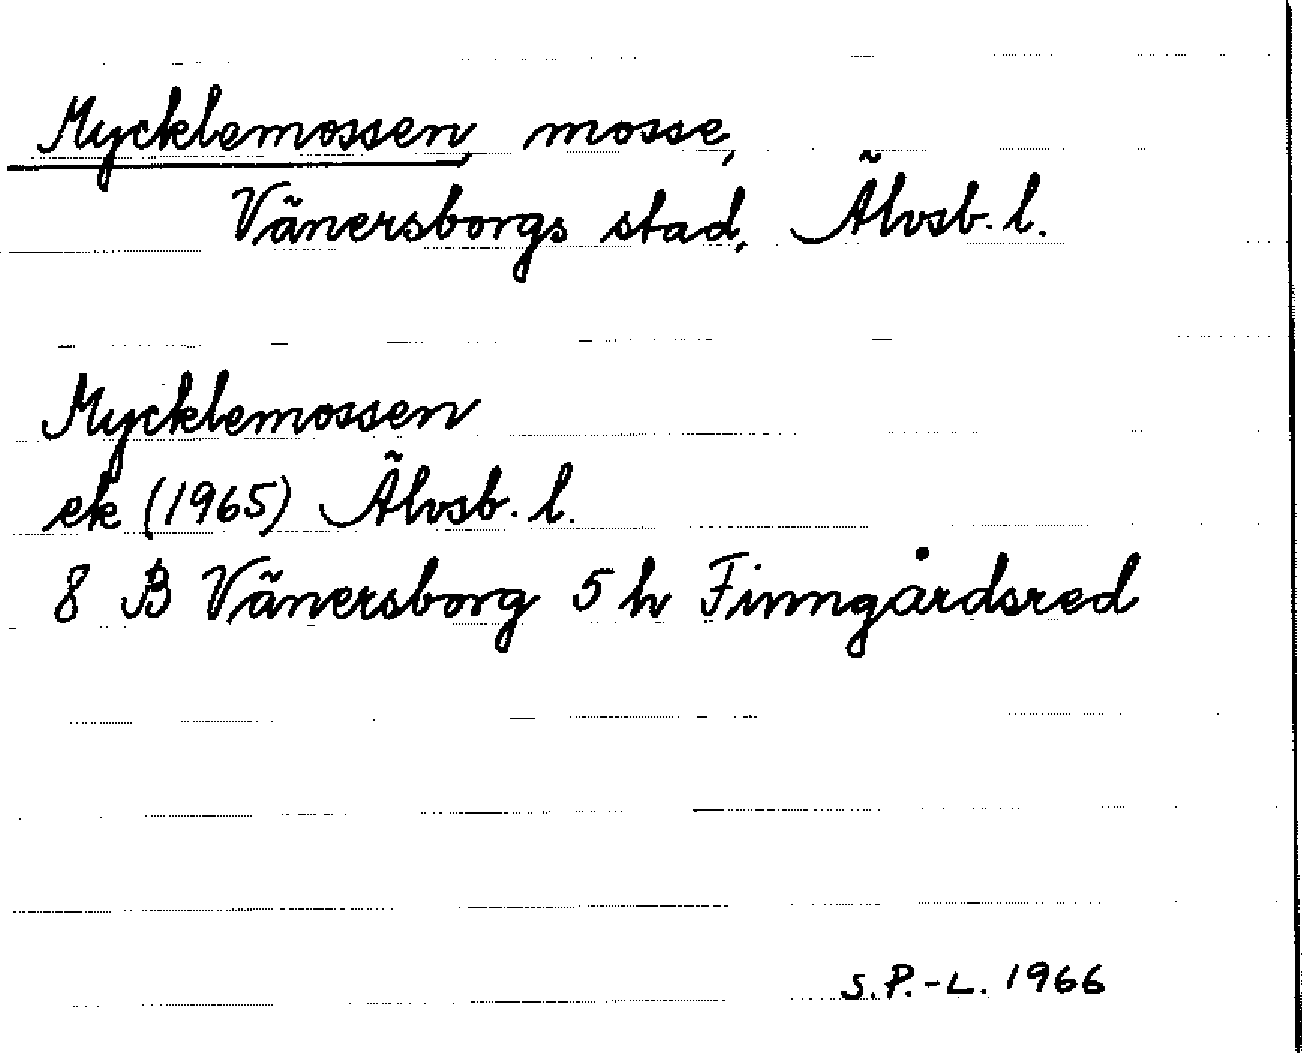 Mycklemossen, mosse,
Vänersborgs stad, Älvsb. l.
Mycklemossen
ek (1965) Älvsb. l.
8 B Vänersborg 5 h Finngårdsred
S.P.-L. 1966